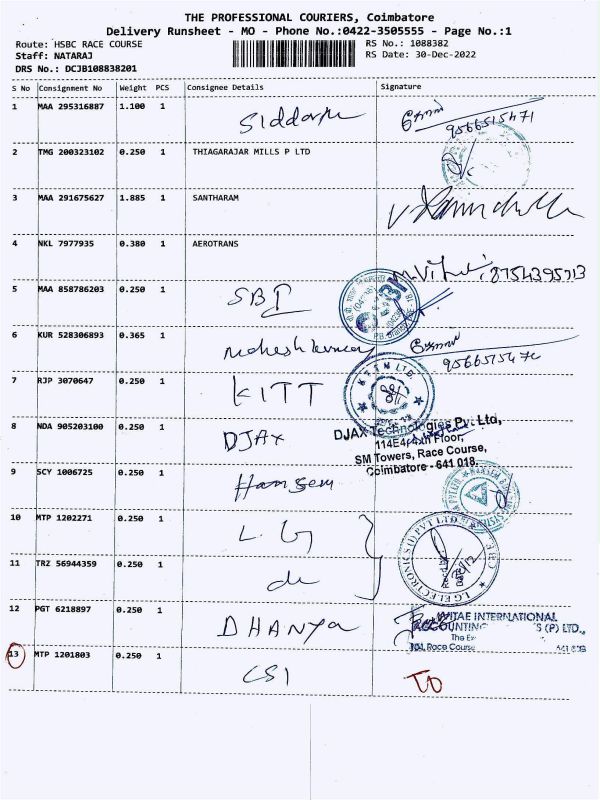 THE PROFESSIONAL COURIERS, Coimbatore
Delivery Runsheet - MO - Phone No.:0422-3505555 - Page No.:1
Route: HSBC RACE COURSE RS No.: 1088382
Staff: NATARAJ RS Date: 30-Dec-2022
DRS No.: DCJB108838201
S No Consignment No Weight PCS Consignee Details Signature
1 MAA 295316887 1.100 1 Siddarth
9566515471
2 TMG 200323102 0.250 1 THIAGARAJAR MILLS P LTD
3 MAA 291675627 1.885 1 SANTHARAM
4 NKL 7977935 0.380 1 AEROTRANS
8754395713
5 MAA 858786203 0.250 1 SBI
6 KUR 528306893 0.365 1 Maheshkumar
7 RJP 3070647 0.250 1 KITT
8 NDA 905203100 0.250 1 DJAX
DJAX Technologies Pvt Ltd,
114E4, 4th Floor,
SM Towers, Race Course,
Coimbatore - 641 018.
9 SCY 1006725 0.250 1
10 MTP 1202271 0.250 1 L G
LG ELECTRONICS (I) PVT LTD
11 TRZ 56944359 0.250 1 do
12 PGT 6218897 0.250 1 DHANYA
VITAE INTERNATIONAL
ACCOUNTING S (P) LTD.,
Race Course
13 MTP 1201803 0.250 1 CSI TO